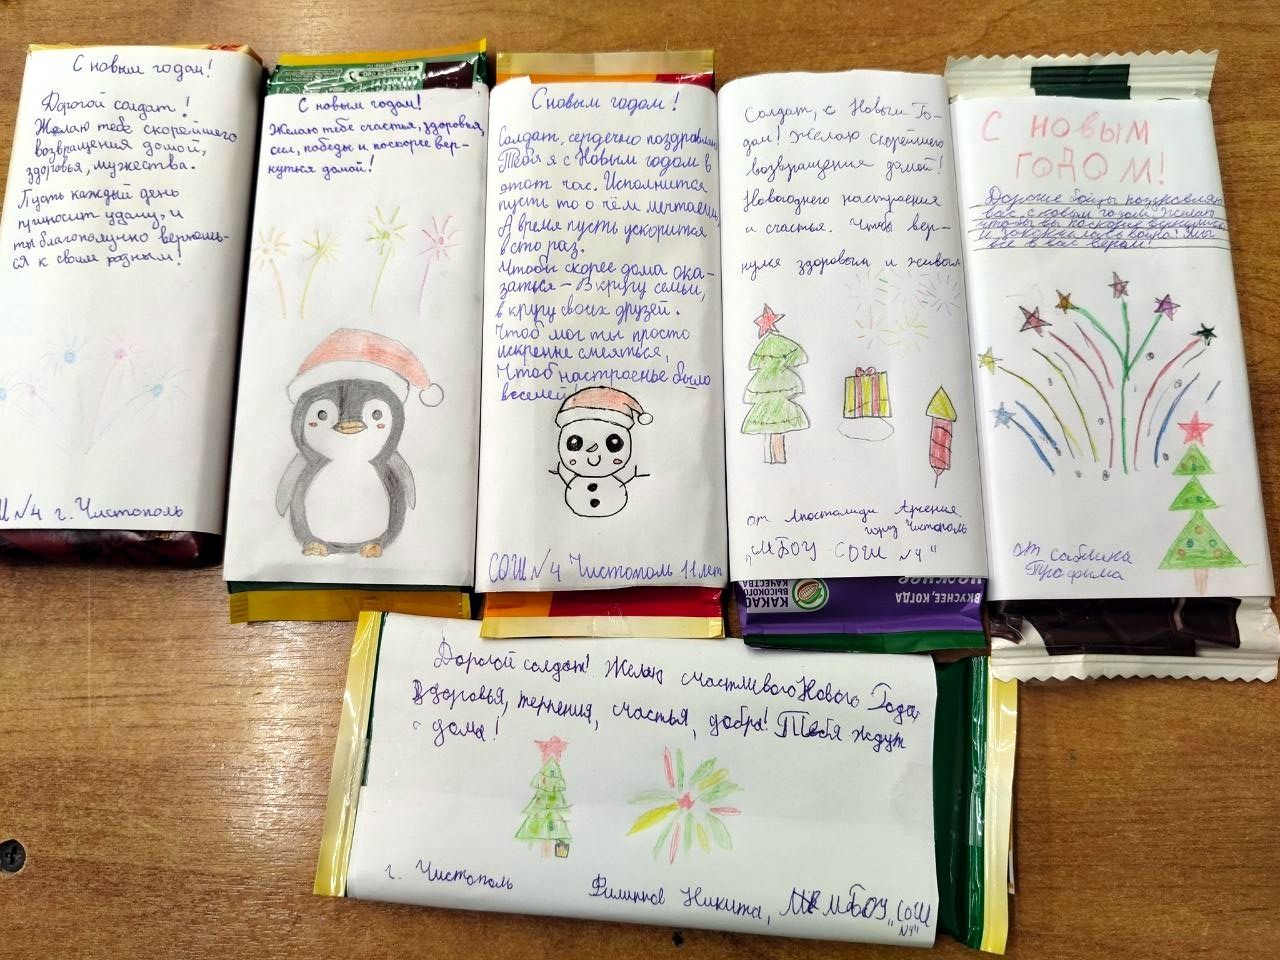 С новым годом!
Дорогой солдат!
Желаю тебе скорейшего
возвращения домой,
здоровья, мужества.
Пусть каждый день
приносит удачу, и
ты благополучно вернёшь-
ся к своим родным!
№4 г. Чистополь
С новым годом!
Желаю тебе счастья, здоровья,
сил, победы и поскорее вер-
нуться домой!
С новым годом!
Солдат, сердечно поздравляю
Тебя я с Новым годом в
этот час. Исполнится
пусть то о чём мечтаешь,
А время пусть ускорится
в сто раз.
Чтобы скорее дома ока-
заться – В кругу семьи,
в кругу своих друзей.
Чтоб мог ты просто
искренне смеяться,
Чтоб настроенье было
веселей
СОШ №4 Чистополь 11 лет
Солдат, с Новым Го-
дом! Желаю скорейшего
возвращения домой!
Новогоднего настроения
и счастья. Чтобы вер-
нулся здоровым и живым
от Апостолиди Арсения
город Чистополь
"МБОУ СОШ №4"
КАКАО
ВЫСОКОГО
КАЧЕСТВА
ВКУСНЕЕ, КОГДА
НЕЖНОЕ
С НОВЫМ
ГОДОМ!
Дорогие бойцы поздравляю
вас с новым годом. Желаю
чтобы вы поскорее
и закончилась война! Мы
все в вас верим!
от Саблина
Трофима
Дорогой солдат! Желаю счастливого Нового Года,
Здоровья, терпения, счастья, добра! Тебя ждут
дома!
г. Чистополь
Филиппов Никита, МБОУ "СОШ
№4"